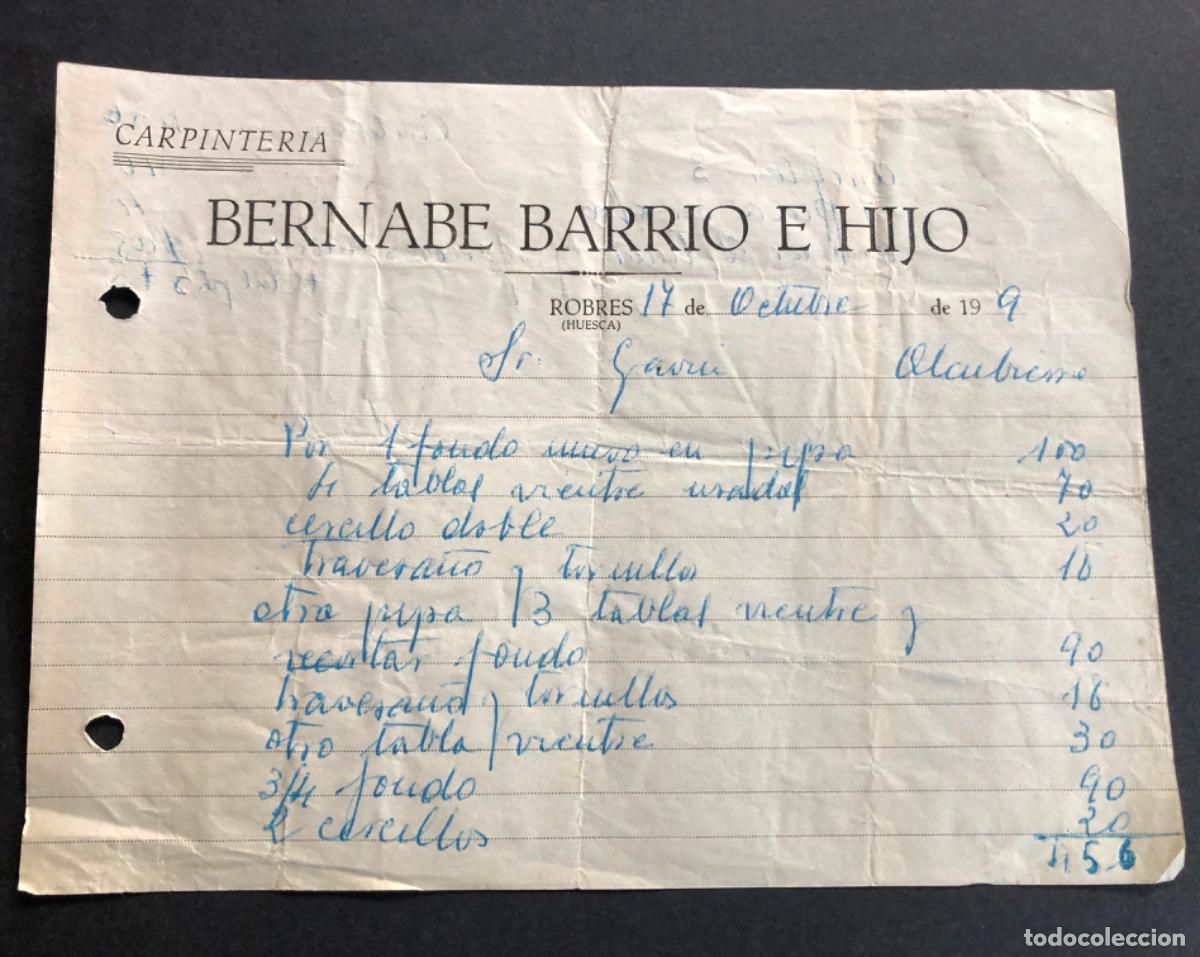 CARPINTERIA
BERNABE BARRIO E HIJO
ROBRES 17 de Octubre de 19 9
(HUESCA)
Sr. Gavin Alcubierre
Por 1 fondo nuevo en pipa 100
4 tablas vientre usadas 70
cercillo doble 20
traveraño y tornillos 18
otro pipa 3 tablas vientre y
recortar fondo 90
traveraño y tornillos 18
otro tabla vientre 30
3/4 fondo 90
2 cercillos 20
456
todocoleccion